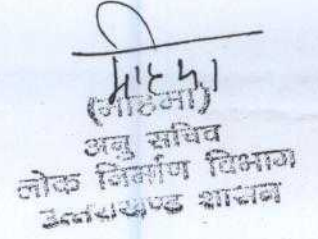 महिमा
(महिमा)
अनु सचिव
लोक निर्माण विभाग
उत्तराखण्ड शासन